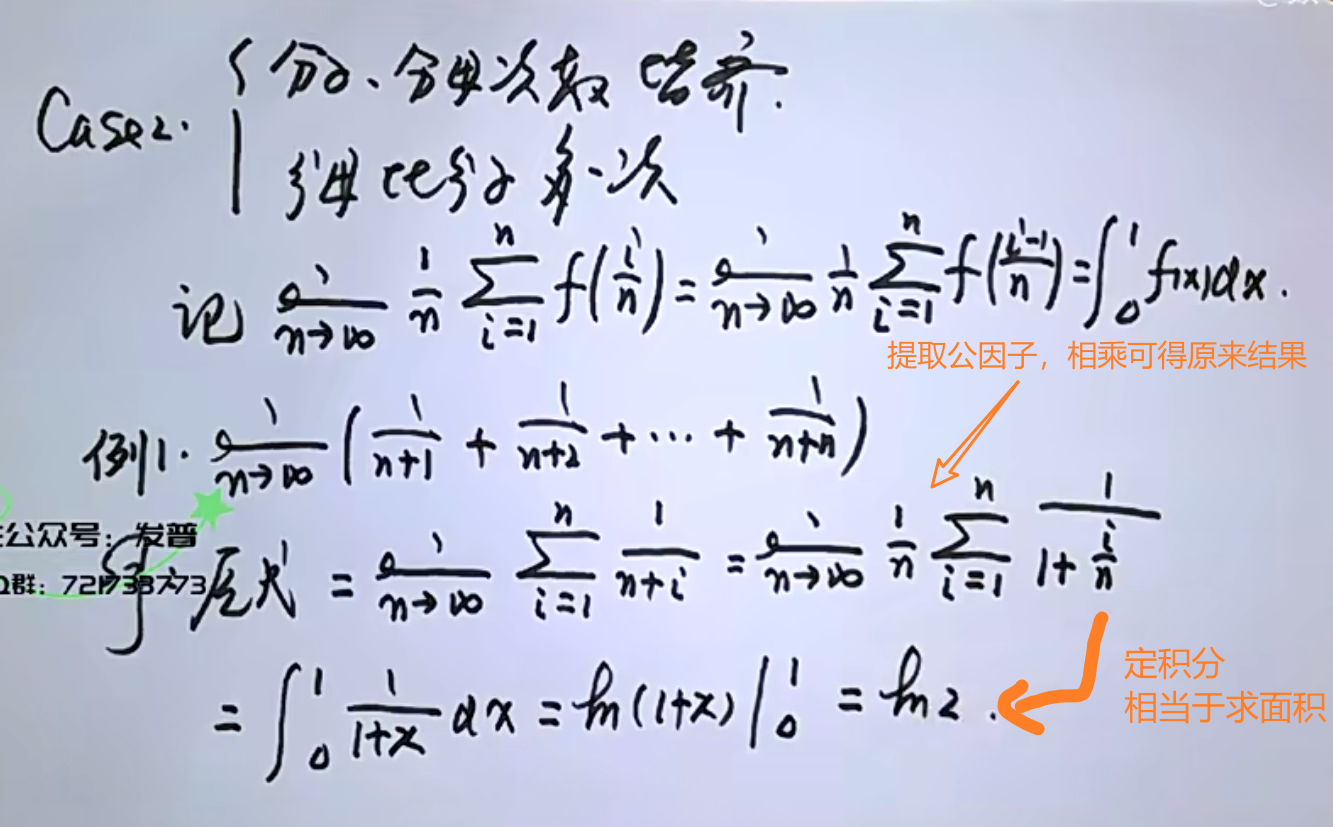 Case2. { 分子、分母次数皆齐.
分母比分子多一次
记 lim n→∞ 1/n ∑_{i=1}^{n} f(i/n) = lim n→∞ 1/n ∑_{i=1}^{n} f((i-1)/n) = ∫_0^1 f(x)dx.
提取公因子，相乘可得原来结果
例1. lim n→∞ (1/(n+1) + 1/(n+2) + ⋯ + 1/(n+n))
公众号：发普
群：721733773
解: 原式 = lim n→∞ ∑_{i=1}^{n} 1/(n+i) = lim n→∞ 1/n ∑_{i=1}^{n} 1/(1+i/n)
= ∫_0^1 1/(1+x) dx = ln(1+x) |_0^1 = ln2.
定积分
相当于求面积